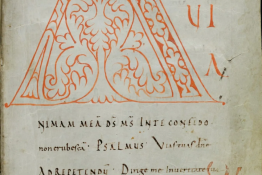 UI
A
NIMAM MEĀ D̄S M̄S INTE CONFIDO
non erubescā · PSALMUS Vias tuas dn̄e
AD REPETENDŪ · Dirige me inueritate